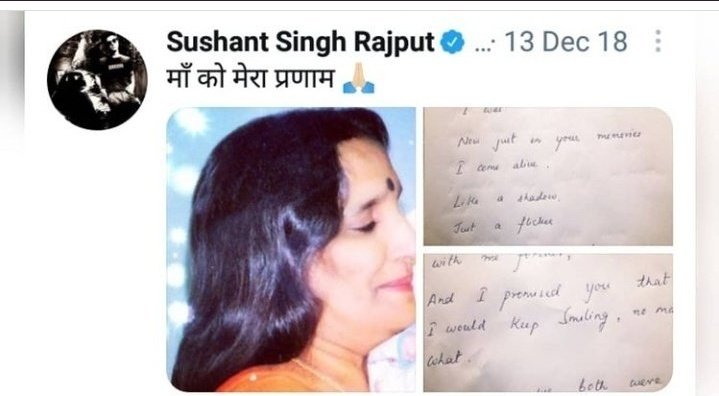 Sushant Singh Rajput ...· 13 Dec 18
माँ को मेरा प्रणाम 🙏🏼
I was
Now just in your memories
I come alive.
Like a shadow.
Just a flicker
with me forever,
And I promised you that
I would keep smiling, no ma
what.
both were